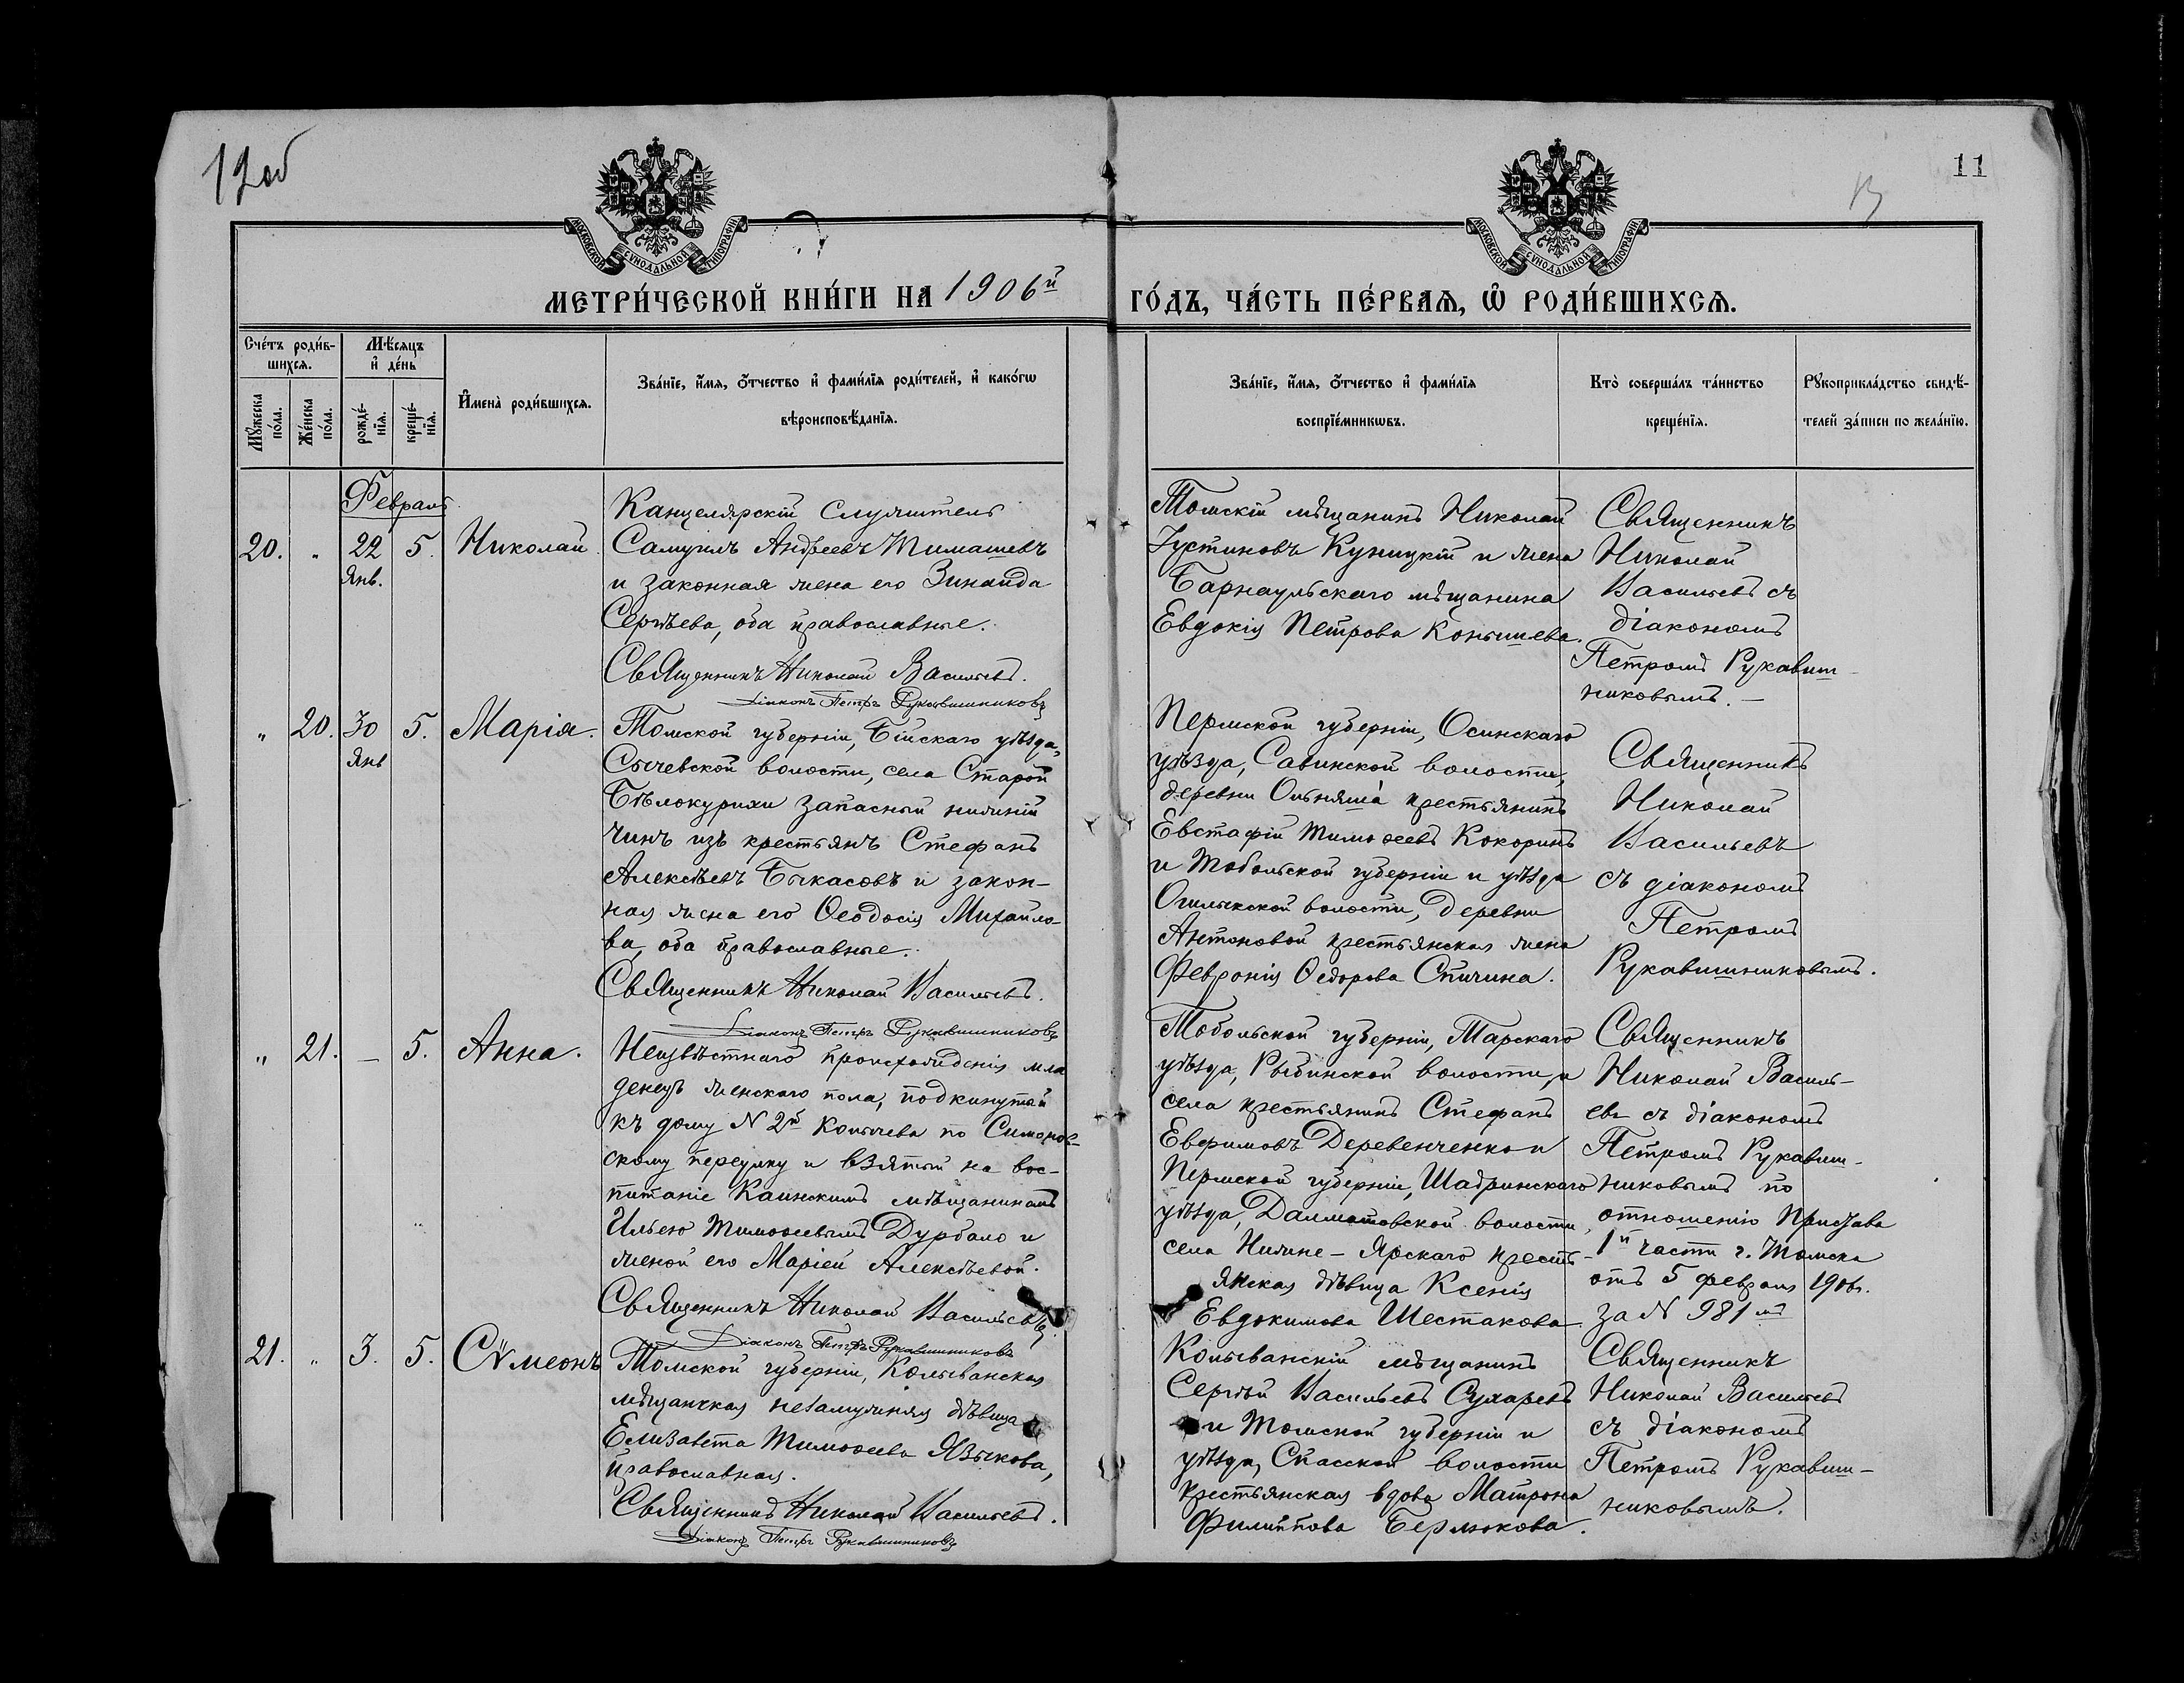 12об
11
13
МОСКОВСКОЙ СѴНОДАЛЬНОЙ ТИПОГРАФІИ
МОСКОВСКОЙ СѴНОДАЛЬНОЙ ТИПОГРАФІИ
МЕТРИ́ЧЕСКОЙ КНИ́ГИ НА 1906й
ГО́ДЪ, ЧА́СТЬ ПЕ́РВАѦ, Ѡ҆ РОДИ́ВШИХСѦ.
Сче́тъ роди́в-
шихсѧ.
Мѣ́сѧцъ
и҆ де́нь
Мꙋ́жеска
по́ла.
Же́нска
по́ла.
рожде́-
нїѧ.
креще́-
нїѧ.
И҆мена̀ роди́вшихсѧ.
Зва́нїе, и҆́мѧ, ѻ҆́тчество и҆ фами́лїѧ роди́телей, и҆ како́гѡ
вѣроисповѣ́данїѧ.
Зва́нїе, и҆́мѧ, ѻ҆́тчество и҆ фами́лїѧ
воспрїе́мникѡвъ.
Кто̀ соверша́лъ та́инство
креще́нїѧ.
Рꙋкоприкла́дство свидѣ́-
телей за́писи по жела́нїю.
Февраль
20. " 22 5. Николай
Янв.
Канцелярскій служитель
Самуилъ Андреевъ Тимашевъ
и законная жена его Зинаида
Сергѣева, оба православные.
Священникъ Николай Васильевъ.
Діаконъ Петръ Рукавишниковъ
Томскій мѣщанинъ Николай
Іустиновъ Куницкій и жена
Барнаульскаго мѣщанина
Евдокія Петрова Конышева.
Священникъ
Николай
Васильевъ съ
діакономъ
Петромъ Рукавиш-
никовымъ.—
" 20. 30 5. Марія.
Янв
Томской губерніи, Бійскаго уѣзда,
Сычевской волости, села Старой
Бѣлокурихи запасный нижній
чинъ изъ крестьянъ Стефанъ
Алексѣевъ Быкасовъ и закон-
ная жена его Ѳеодосія Михайло-
ва, оба православные.
Священникъ Николай Васильевъ.
Діаконъ Петръ Рукавишниковъ
Пермской губерніи, Осинскаго
уѣзда, Савинской волости,
деревни Ольняша крестьянинъ
Евстафій Тимоѳеевъ Кокоринъ
и Тобольской губерніи и уѣзда
волости, деревни
Антоновой крестьянская жена
Февронія Ѳедорова Спичина.
Священникъ
Николай
Васильевъ
съ діакономъ
Петромъ
Рукавишниковымъ.
" 21. — 5. Анна.
Неизвѣстнаго происхожденія мла
денецъ женскаго пола, подкинутый
къ дому N 2й Копычева по Симонов-
скому переулку и взятый на вос-
питаніе Каинскимъ мѣщаниномъ
Ильею Тимоѳеевымъ Дурбало и
женой его Маріей Алексѣевой.
Священникъ Николай Васильевъ.
Діаконъ Петръ Рукавишниковъ
Тобольской губерніи, Тарскаго
уѣзда, Рыбинской волости и
села крестьянинъ Стефанъ
Евфимовъ Деревенченко и
Пермской губерніи, Шадринскаго
уѣзда, Далматовской волости,
села Нижне-Ярскаго кресть-
янская дѣвица Ксенія
Евдокимова Шестакова
Священникъ
Николай Василь-
евъ съ діакономъ
Петромъ Рукавиш-
никовымъ по
отношенію Пристава
1й части г. Томска
отъ 5 февраля 1906г.
за N 981мъ
21. " 3. 5. Сѷмеонъ
Томской губерніи, Колыванская
мѣщанская незамужняя дѣвица
Елизавета Тимоѳеева Языкова,
православная.
Священникъ Николай Васильевъ.
Діаконъ Петръ Рукавишниковъ
Колыванскій мѣщанинъ
Сергѣй Васильевъ Сухаревъ
и Томской губерніи и
уѣзда, Спасской волости
крестьянская вдова Матрона
Филиппова Бермокова.
Священникъ
Николай Васильевъ
съ діакономъ
Петромъ Рукавиш-
никовымъ.